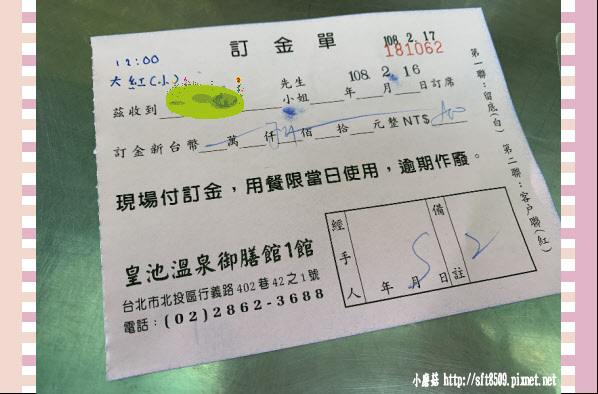 訂金單
108. 2. 17
181062
12:00
大紅(小)
茲收到 先生 小姐 108年 2月 16日訂席
訂金新台幣 萬 仟 佰 拾 元整 NT$
現場付訂金，用餐限當日使用，逾期作廢。
皇池溫泉御膳館1館
台北市北投區行義路402巷42之1號
電話：(02)2862-3688
經手人
年 月 日
5
備註
2
第一聯：留底(白) 第二聯：客戶聯(紅)
小蘑菇 http://sft8509.pixnet.net